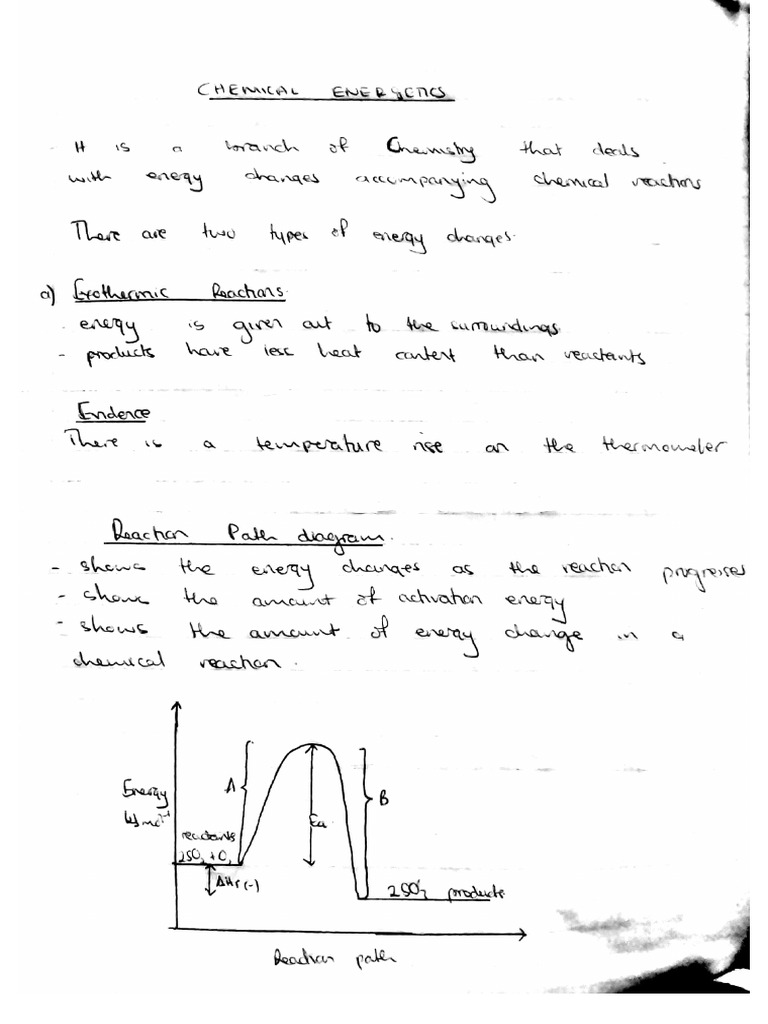 CHEMICAL ENERGETICS
It is a branch of Chemistry that deals
with energy changes accompanying chemical reactions
There are two types of energy changes.
a) Exothermic Reactions
- energy is given out to the surroundings
- products have less heat content than reactants
Evidence
There is a temperature rise on the thermometer
Reaction Path diagram.
- shows the energy changes as the reaction progresses
- shows the amount of activation energy
- shows the amount of energy change in a
chemical reaction.
Energy
kJmol⁻¹
A
B
Ea
reactants
2SO₂ + O₂
ΔHr (-)
2SO₃ products
Reaction path